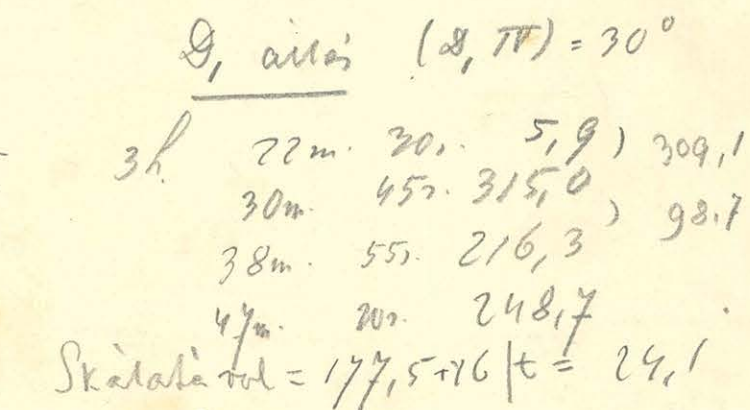 D, állás (D, IV) = 30°
3h. 22m. 30s. 5,9 ) 309,1
30m. 45s. 315,0 ) 98.7
38m. 55s. 216,3
47m. 20s. 248,7
Skálatávol = 177,5+16 | t = 24,1